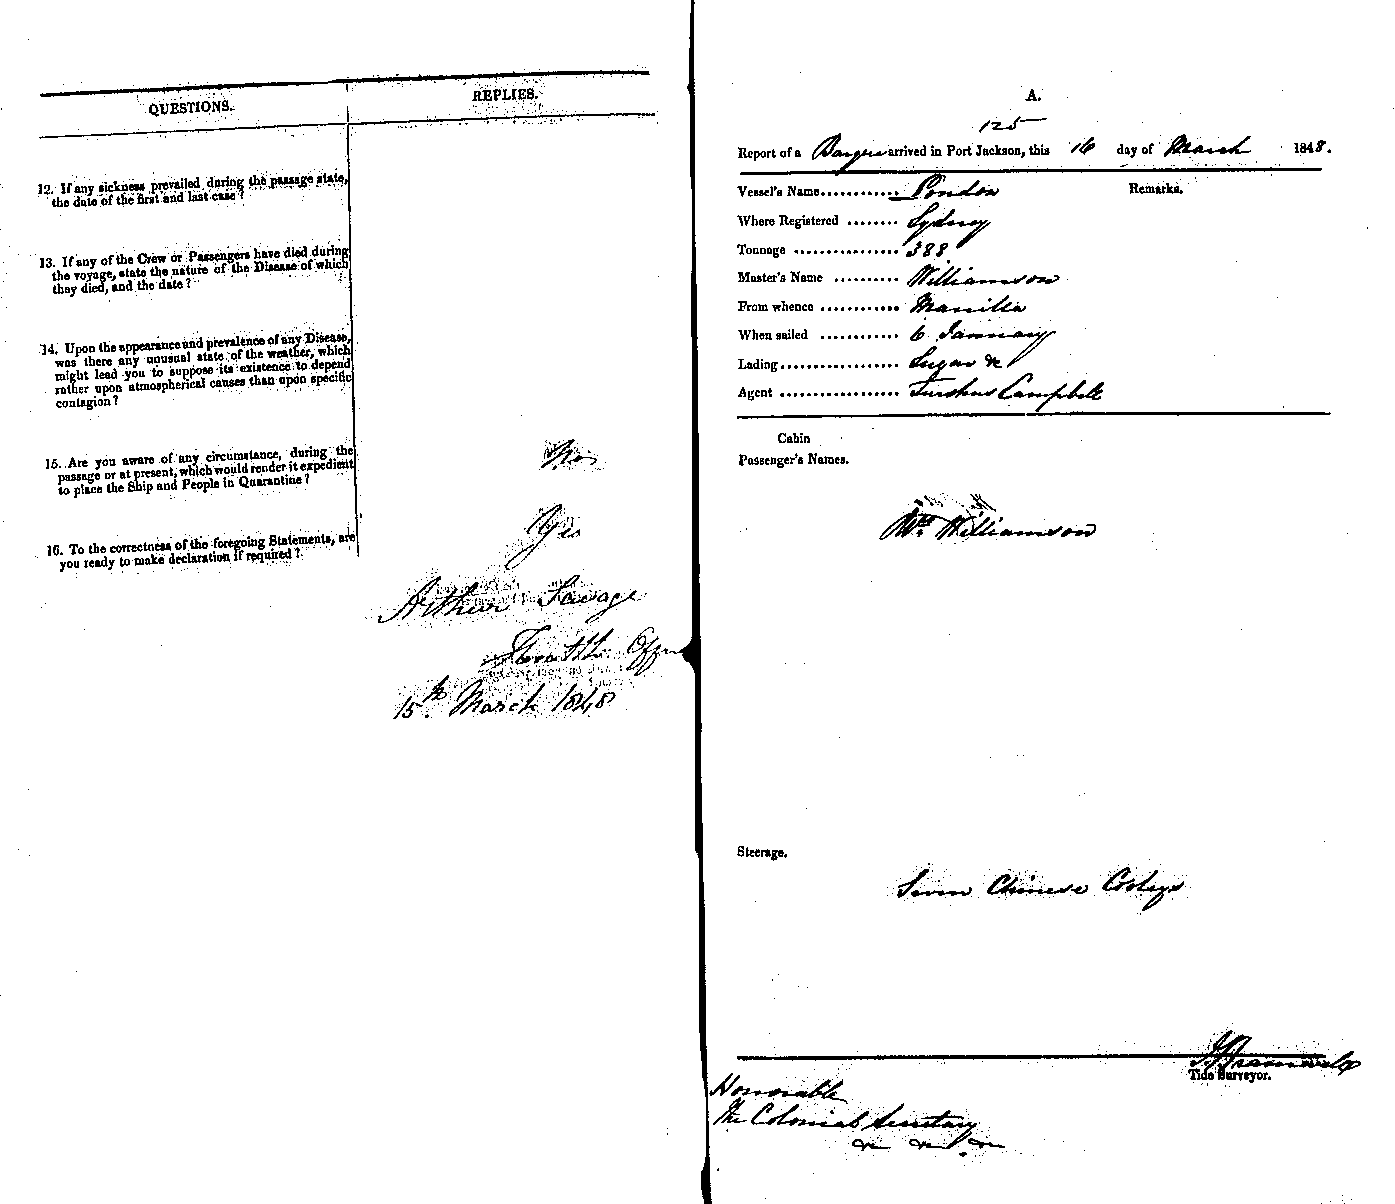 QUESTIONS.
REPLIES.
12. If any sickness prevailed during the passage state,
the date of the first and last case?
13. If any of the Crew or Passengers have died during
the voyage, state the nature of the Disease of which
they died, and the date?
14. Upon the appearance and prevalence of any Disease,
was there any unusual state of the weather, which
might lead you to suppose its existence to depend
rather upon atmospherical causes than upon specific
contagion?
15. Are you aware of any circumstance, during the
passage or at present, which would render it expedient
to place the Ship and People in Quarantine?
No
16. To the correctness of the foregoing Statements, are
you ready to make declaration if required?
Yes
Arthur Savage
15th March 1848
A.
125
Report of a Barque arrived in Port Jackson, this 16 day of March 1848.
Vessel's Name
Remarks.
Where Registered ........ Sydney
Tonnage ............... 388
Master's Name .......... Williamson
From whence ............ Manilla
When sailed ............ 6 January
Lading.................. Sugar &c
Agent .................. Campbell
Cabin
Passenger's Names.
Williamson
Steerage.
Seven Chinese Cooleys
Tide Surveyor.
Honorable
The Colonial Secretary